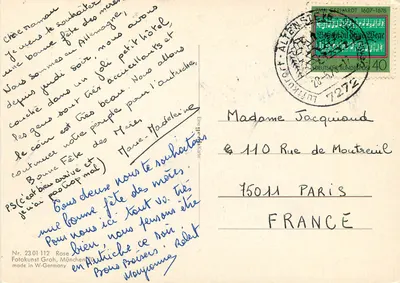 Chère Maman,
Je viens te souhaiter
une bonne fête des mères.
Nous sommes en Allemagne,
depuis jeudi soir, nous avons
couché dans un joli petit hôtel,
les gens sont très accueillants et
le coin est très beau. Nous allons
continuer notre périple pour l'autriche.
Bonne Fête des Mères
Marie-Madeleine
PS (c'est bien arrivé et
pas trop mal)
Tous deux nous te souhaitons
une bonne fête des mères.
Pour nous ici tout va très
bien, nous pensons être
en Autriche ce soir.
Bons Baisers. Robert
Maryvonne
Nr. 23 01 112 Rose
Fotokunst Groh, München
made in W-Germany
1607-1676
40
ALLENSTEIG
LUFTKURORT
7272
Madame Jacquiaud
110 Rue de Montreuil
75011 PARIS
FRANCE